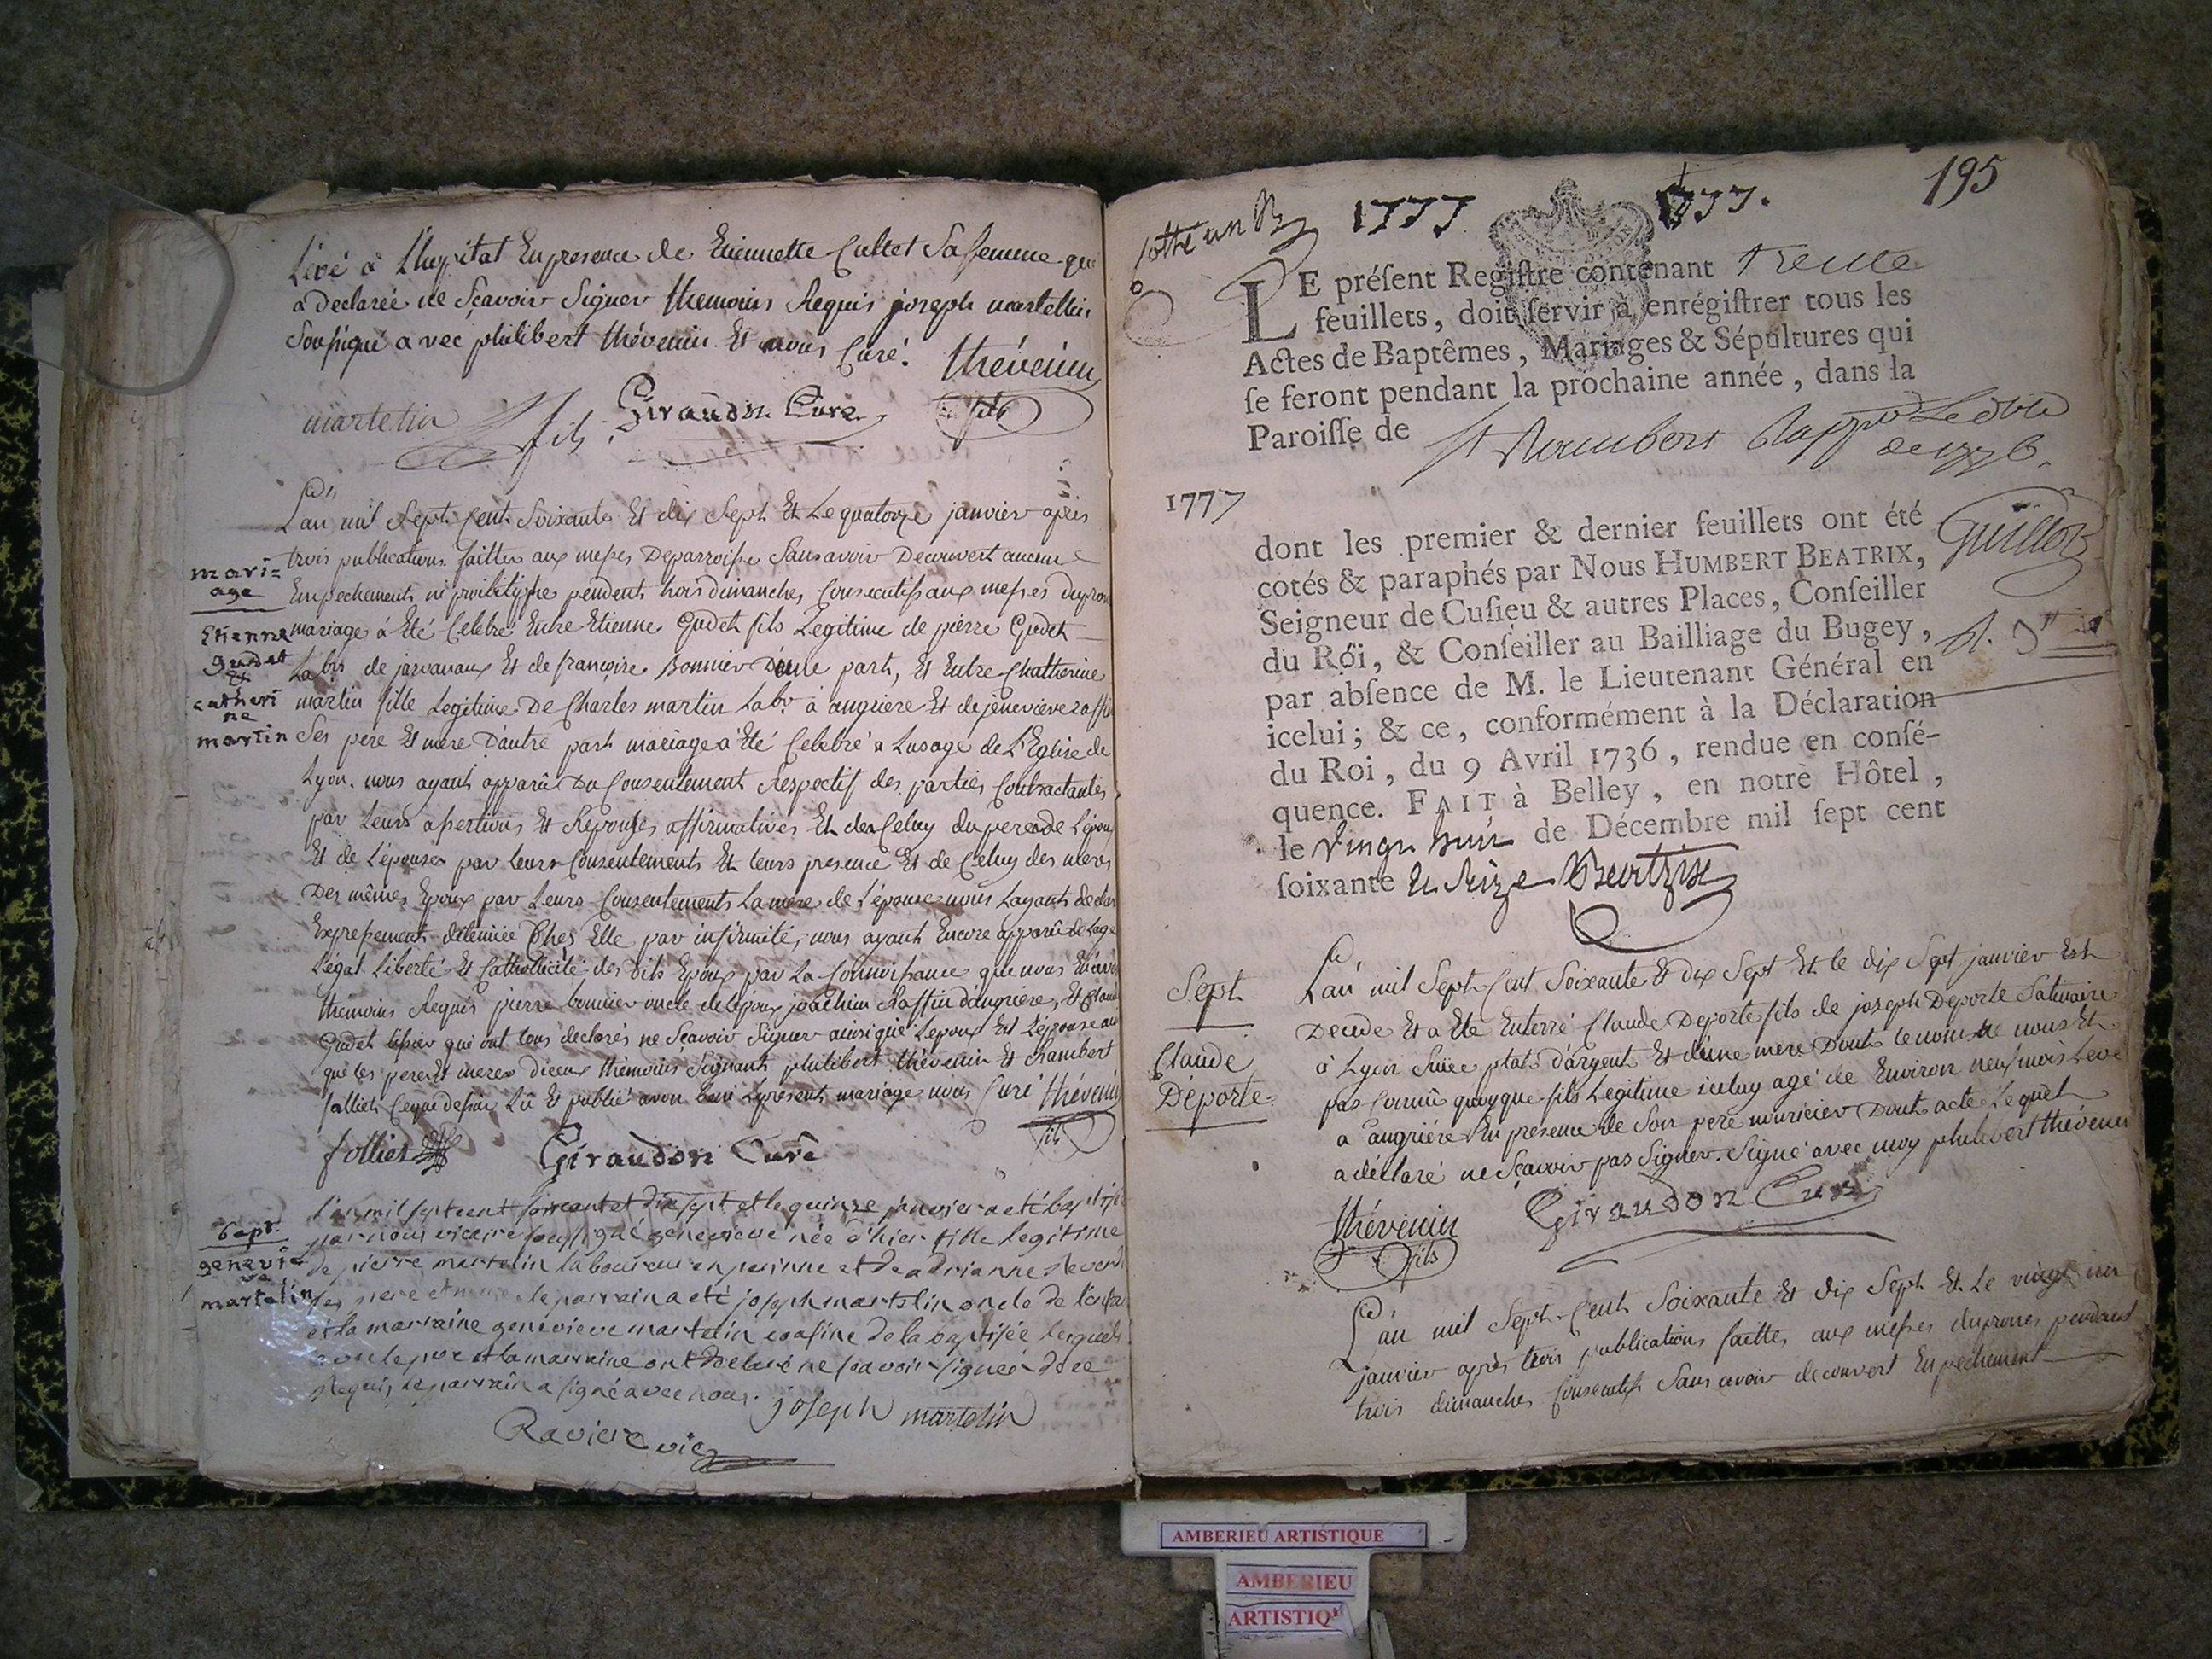 Levé à L'hopital En presence de Etiennette Cultet Sa femme qui
a declarée ne Sçavoir Signer themoins Requis joseph martellin
Sousigné avec philibert thévenin Et nous Curé. thévenin
martelin fils Giraudon Curé fils
L'an mil Sept Cent Soixante Et dix Sept Et Le quatorze janvier après
trois publications faittes aux messes Deparroisse Sans avoir Decouvert aucun
Empechements ni pendents trois dimanches Consecutifs aux messes du prone
mari=
age
Etienne
gudet
&
catheri
ne
martin
mariage à Eté Celebré Entre Etienne Gudet fils Legitime de pierre Gudet
Labr de javanaux Et de francoise Bonnier D'une part, Et Entre Chatherine
martin fille Legitime De Charles martin Labr à angriere Et de jenevieve raffin
Ses pere Et mere D'autre part mariage a Eté Celebré a Lusage de L'Eglise de
Lyon. nous ayants apparû Du Consentement Respectif des parties Contractantes
par Leurs assertions Et Réponses affirmatives Et de Celuy du pere de L'époux
Et de L'épouse par leurs Consentements Et leurs presence Et de Celuy des meres
Des mêmes Epoux par Leurs Consentements La mere de L'épouse nous Layants declaré
Expressement détenüe Chez Elle par infirmité, nous ayant Encore apparû de Lage
Légal Liberté Et Catholicité des dits Epoux par La Connoissance que nous En avons
themoins Requis pierre bonnier oncle de Lepoux joachim Raffin d'angriere, Et Claude
Gudet qui ont tous declarés ne Sçavoir Signer ainsi que Lepoux Et L'épouse
que les peres Et meres D'iceux themoins Signants philibert thévenin Et Chambert
follieti Ceque dessus Lu Et publié avon beni Lepresent mariage nous Curé thévenin
follieti Giraudon Curé fils
bapt.
genevie
ve
martelin
l'an mil sept cent soixante et dix sept et le quinze janvier a eté baptisée
par nous vicaire soussigné genevieve née d'hier fille legitime
de pierre martelin laboureur en et de adrianne
ses pere et mere le parrain a eté joseph martelin oncle de l'enfant
et la marraine genevieve martelin cousine de la baptisée lesquels
le pere et la marraine ont declaré ne scavoir signer de ce
Requis le parrain a signé avec nous. joseph martelin
Ravier vic
195
Cotté un
1777 1777.
LE préſent Regiſtre contenant trente
feuillets, doit ſervir à enrégiſtrer tous les
Actes de Baptêmes, Mariages & Sépultures qui
ſe feront pendant la prochaine année, dans la
Paroiſſe de St Rambert
de 1776.
1777
dont les premier & dernier feuillets ont été
cotés & paraphés par Nous HUMBERT BEATRIX,
Seigneur de Cuſieu & autres Places, Conſeiller
du Roi, & Conſeiller au Bailliage du Bugey,
par abſence de M. le Lieutenant Général en
icelui; & ce, conformément à la Déclaration
du Roi, du 9 Avril 1736, rendue en conſé-
quence. FAIT à Belley, en notre Hôtel,
le vingt huit de Décembre mil ſept cent
ſoixante et seize Beatrix
Guillot
Sept
Claude
Déporte
L'an mil Sept Cent Soixante Et dix Sept Et le dix Sept janvier Est
Decede Et a Ete Enterré Claude Deporte fils de joseph Deporte Satinaire
à Lyon Rüe plat d'argent Et d'une mere Dont le nom ne nous Est
pas Connû quoyque fils Legitime iceluy agé de Environ neuf mois Levé
a angriére En presence de Son pere nouricier Dont acte Lequel
a déclaré ne Sçavoir pas Signer. Signé avec moy philibert thévenin
thévenin Giraudon Curé
fils
L'an mil Sept Cent Soixante Et dix Sept Et Le vingt un
janvier après trois publications faittes aux messes du prones pendant
trois dimanches Consecutifs Sans avoir decouvert Enpechement
AMBERIEU ARTISTIQUE
AMBERIEU
ARTISTIQ